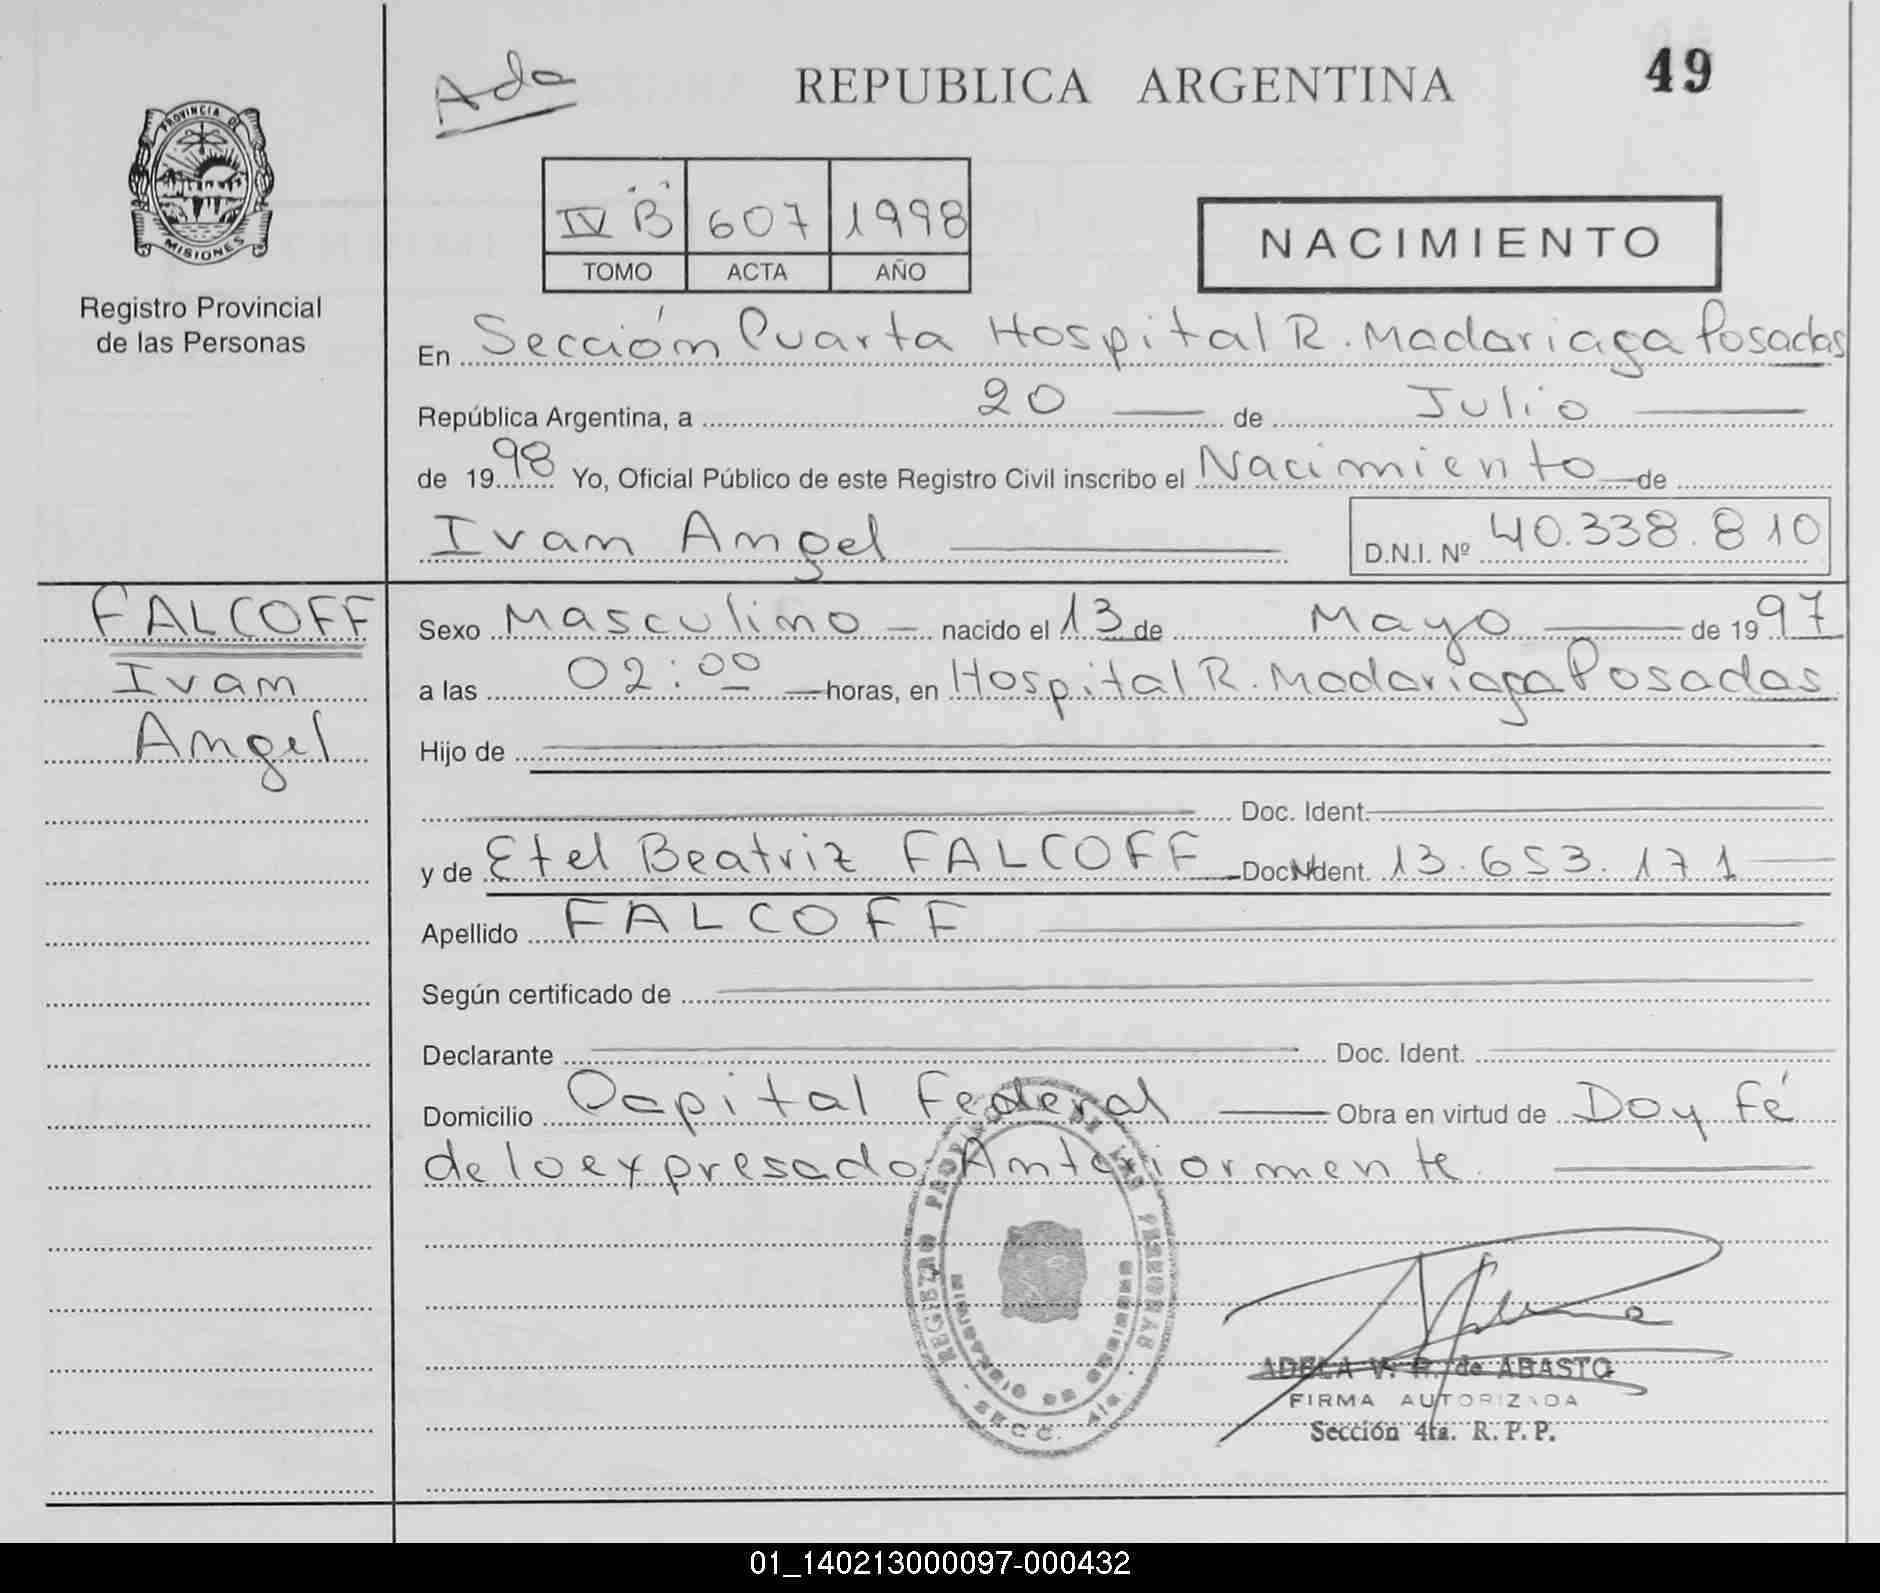 Ada
REPUBLICA ARGENTINA
49
PROVINCIA DE
MISIONES
Registro Provincial
de las Personas
IV "B" 607 1998
TOMO ACTA AÑO
NACIMIENTO
En Sección Cuarta Hospital R. Madariaga Posadas
República Argentina, a 20 de Julio
de 1998 Yo, Oficial Público de este Registro Civil inscribo el Nacimiento de
Ivan Angel D.N.I. Nº 40.338.810
FALCOFF
Ivan
Angel
Sexo Masculino nacido el 13 de Mayo de 1997
a las 02:00 horas, en Hospital R. Madariaga Posadas
Hijo de
Doc. Ident.
y de Etel Beatriz FALCOFF Doc. Ident. 13.653.171
Apellido FALCOFF
Según certificado de
Declarante Doc. Ident.
Domicilio Capital Federal Obra en virtud de Doy Fé
de lo expresado Anteriormente.
REGISTRO PROVINCIAL DE LAS PERSONAS
MINISTERIO DE GOBIERNO
SECC. 4ta.
ADELA V. R. de ABASTO
FIRMA AUTORIZADA
Sección 4ta. R. P. P.
01_140213000097-000432